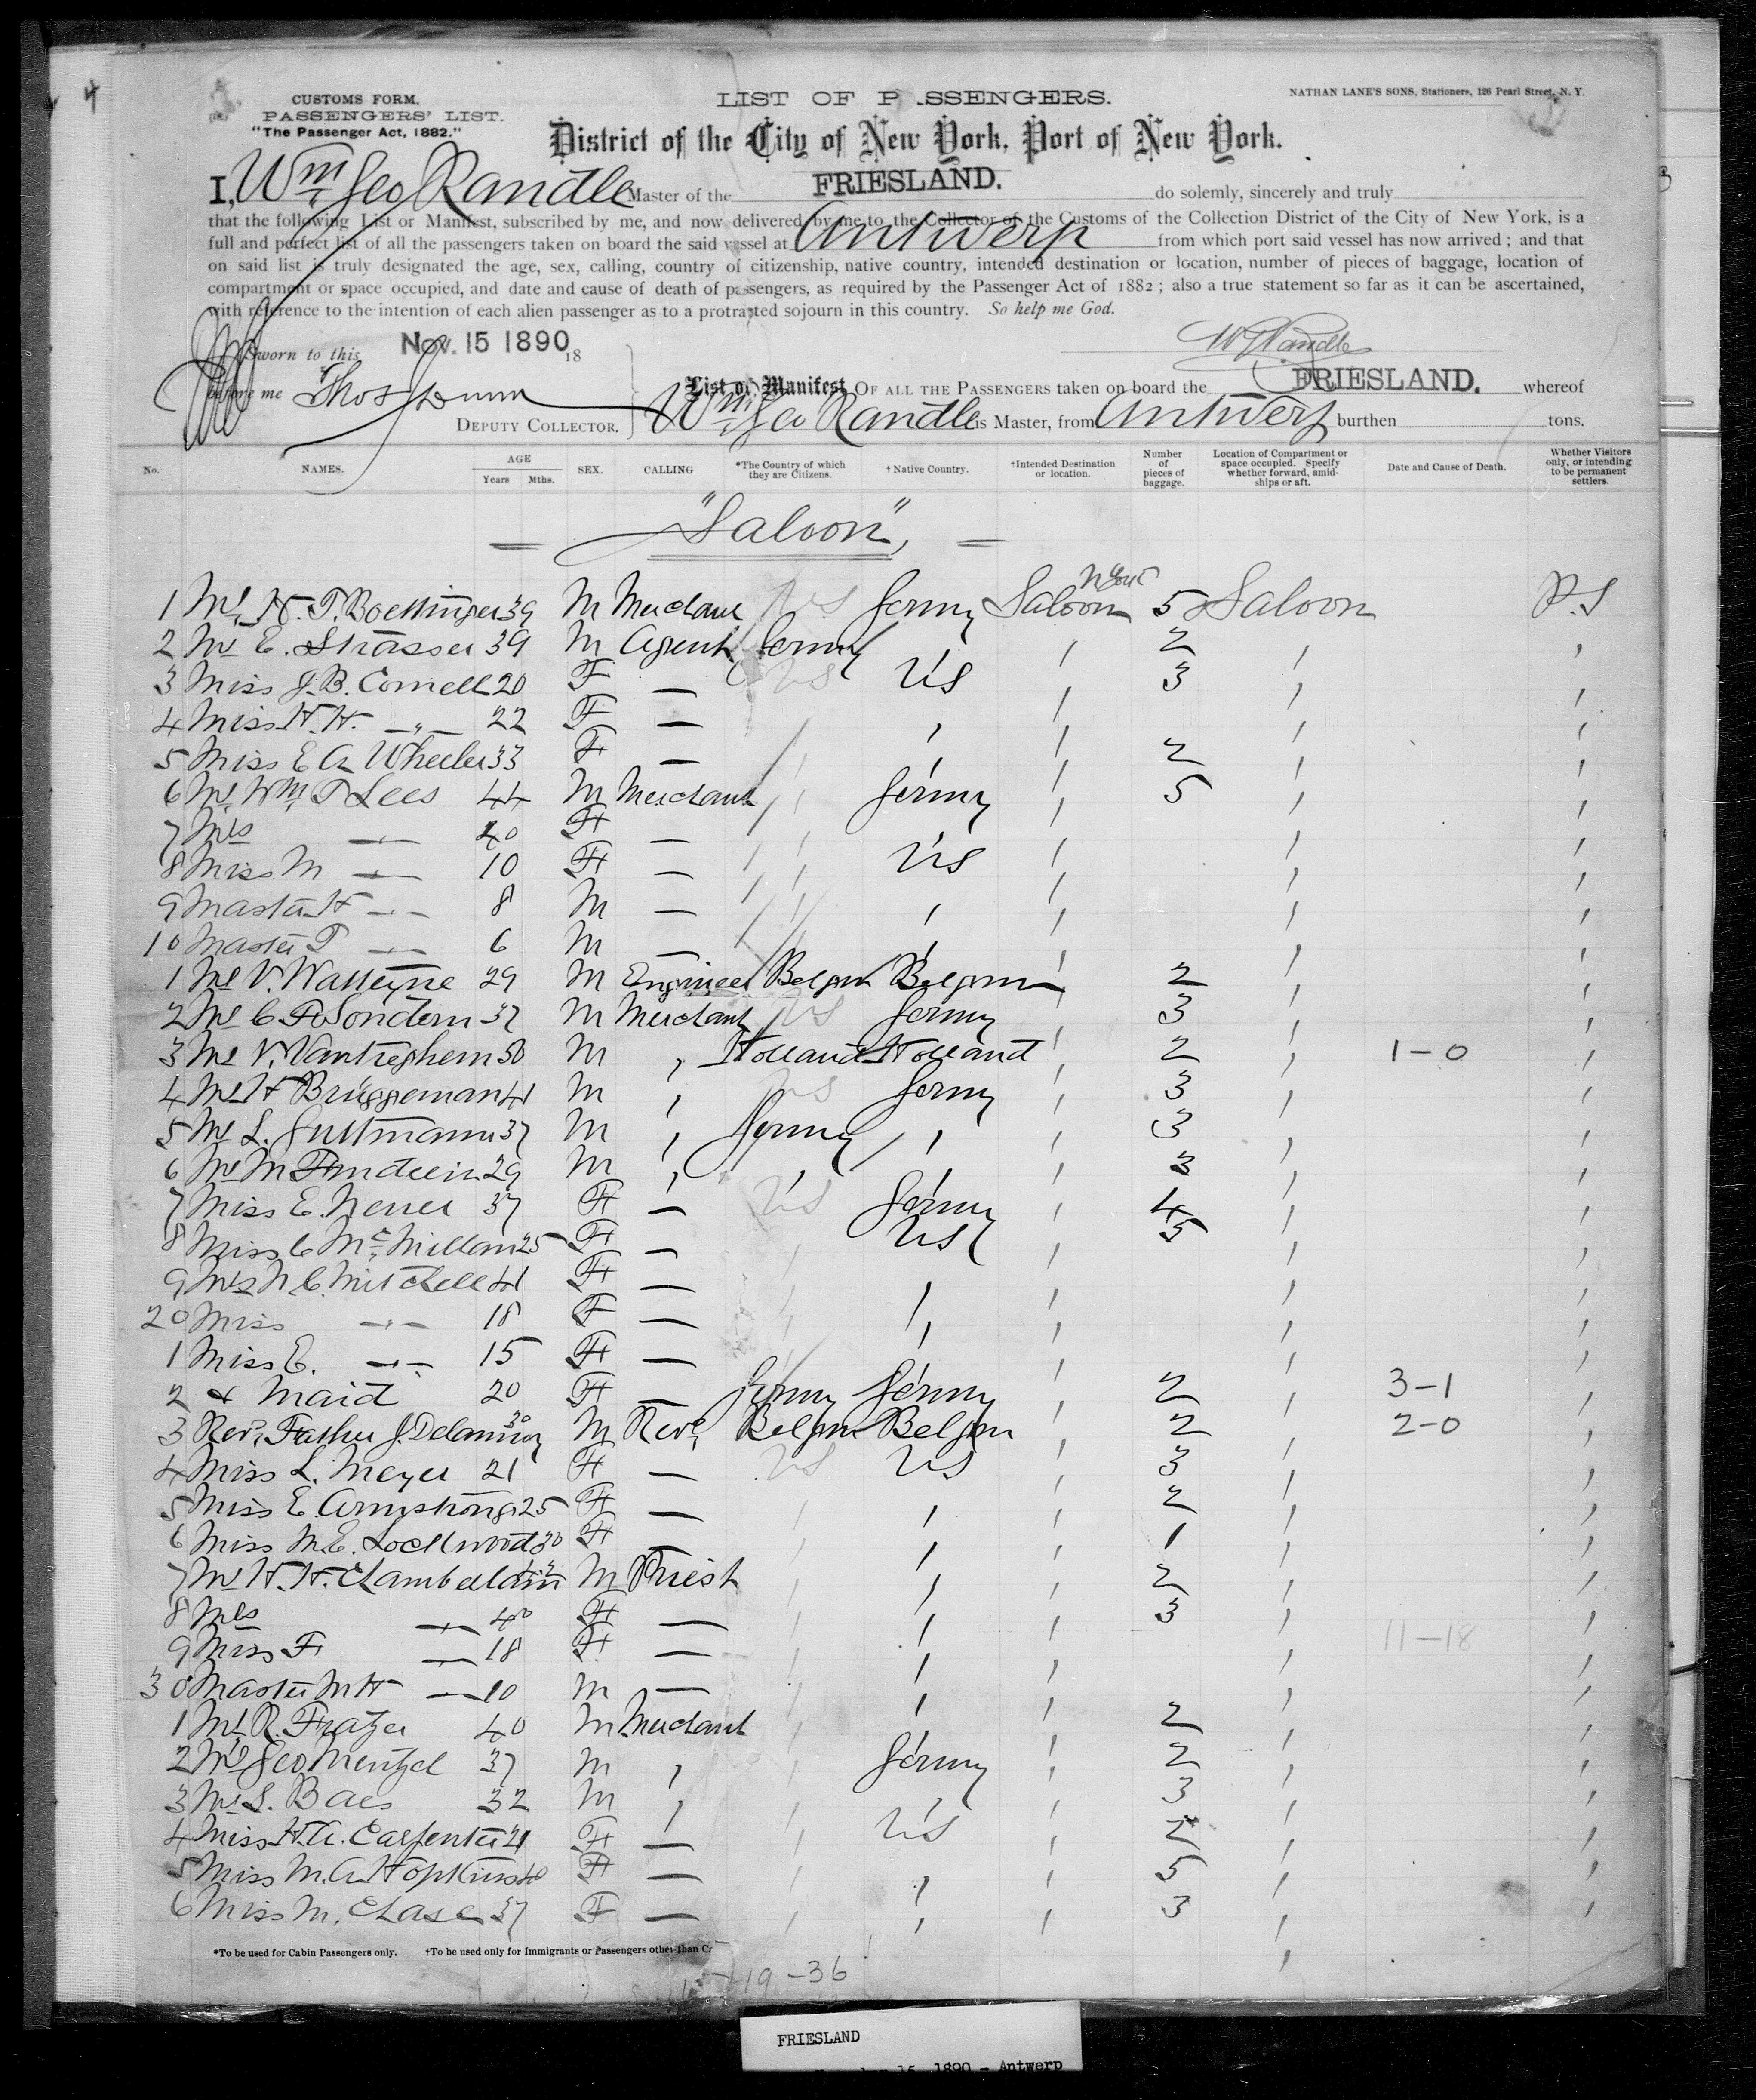 4
CUSTOMS FORM.
PASSENGERS' LIST.
"The Passenger Act, 1882."
LIST OF P ASSENGERS.
NATHAN LANE'S SONS, Stationers, 126 Pearl Street, N. Y.
District of the City of New York, Port of New York.
I, Wm Geo Randle Master of the FRIESLAND. do solemly, sincerely and truly
that the following List or Manifest, subscribed by me, and now delivered by me to the Collector of the Customs of the Collection District of the City of New York, is a
full and perfect list of all the passengers taken on board the said vessel at Antwerp from which port said vessel has now arrived; and that
on said list is truly designated the age, sex, calling, country of citizenship, native country, intended destination or location, number of pieces of baggage, location of
compartment or space occupied, and date and cause of death of passengers, as required by the Passenger Act of 1882; also a true statement so far as it can be ascertained,
with reference to the intention of each alien passenger as to a protracted sojourn in this country. So help me God.
Sworn to this Nov. 15 1890 18
W G Randle
before me Thos Dunn
DEPUTY COLLECTOR.
List or Manifest OF ALL THE PASSENGERS taken on board the FRIESLAND. whereof
Wm Geo Randle is Master, from Antwerp burthen tons.
No. NAMES. AGE Years Mths. SEX. CALLING *The Country of which they are Citizens. †Native Country. †Intended Destination or location. Number of pieces of baggage. Location of Compartment or space occupied. Specify whether forward, amidships or aft. Date and Cause of Death. Whether Visitors only, or intending to be permanent settlers.
"Saloon"
N York
1 Mr. H. T. Boettinger 39 M Merchant US Germy Saloon 5 Saloon P.S
2 Mr E. Strasser 39 M Agent Germy 2
3 Miss J. B. Cornell 20 F — US US 3
4 Miss H. H. —"— 22 F —
5 Miss E A Wheeler 33 F — 2
6 Mr. Wm T Lees 44 M Merchant Germy 5
7 Mrs —"— 40 F —
8 Miss M —"— 10 F — US
9 Master H —"— 8 M —
10 Master T —"— 6 M —
1 Mr V. Watteyne 29 M Engineer Belgm Belgm 2
2 Mr C F Sondern 37 M Merchant US Germy 3
3 Mr V. Vantreghem 50 M Holland Holland 2 1-0
4 Mr H Brüggeman 41 M US Germy 3
5 Mr L. Guttmann 37 M Germy 3
6 Mr M 29 M 3
7 Miss E. 37 F — US Germy 4
8 Miss C McMillan 25 F — US 5
9 Mrs N C Mitchell 41 F —
20 Miss —"— 18 F —
1 Miss E. —"— 15 F —
2 & Maid 20 F — Germy Germy 2 3-1
3 Rev. Father J. 30 M Revd. Belgm Belgm 2 2-0
4 Miss L. Meyer 21 F — US US 3
5 Miss E. Armstrong 25 F — 2
6 Miss M. E. Lockwood 30 F — 1
7 Mr H. H. Chamberlain M Priest 2
8 Mrs —"— 40 F — 3
9 Miss F —"— 18 F — 11-18
30 Master M H —"— 10 M —
1 Mr R. Fratzer 40 M Merchant 2
2 Mr Geo Mentzel 37 M Germy 2
3 Mr S. Baes 32 M 3
4 Miss H. A. Carpenter 21 F — US 2
5 Miss M. A Hopkins 40 F — 5
6 Miss M. Chase 37 F — 3
*To be used for Cabin Passengers only. †To be used only for Immigrants or Passengers other than C
19-36
FRIESLAND
15, 1890 - Antwerp